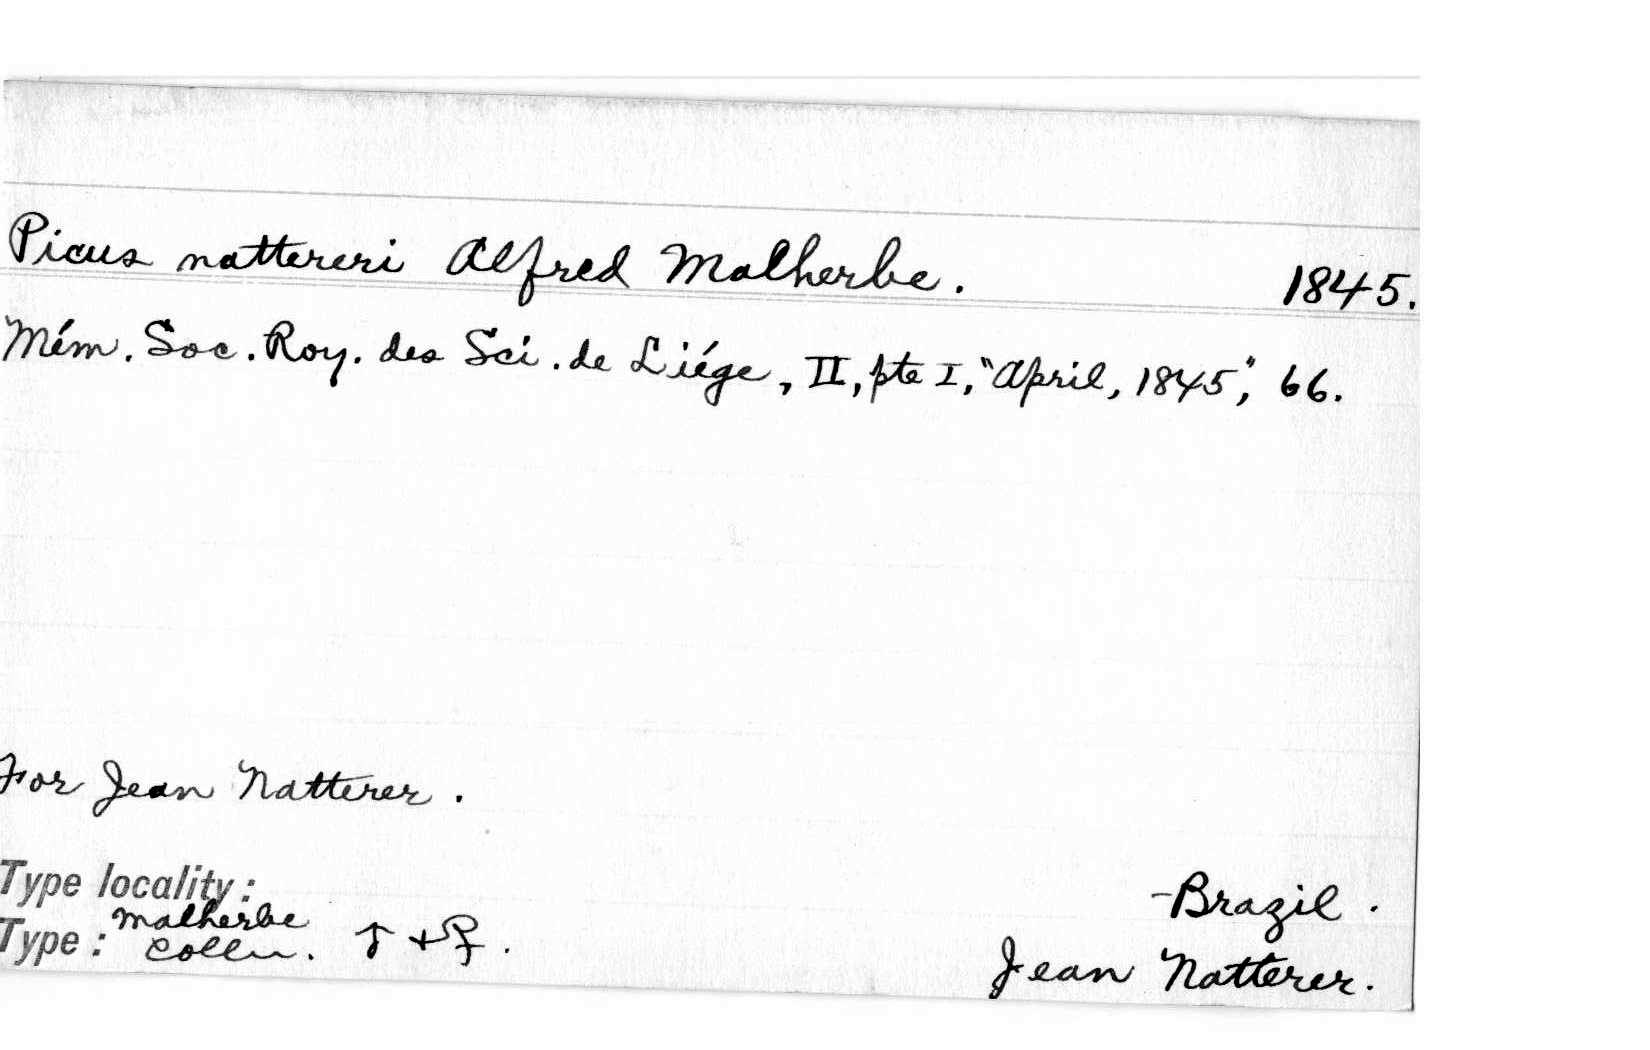 Picus nattereri Alfred Malherbe. 1845.
Mém. Soc. Roy. des Sci. de Liége, II, pte I, "April, 1845", 66.
For Jean Natterer.
Type locality: -Brazil.
Type: Malherbe Colln. ♂ + ♀. Jean Natterer.